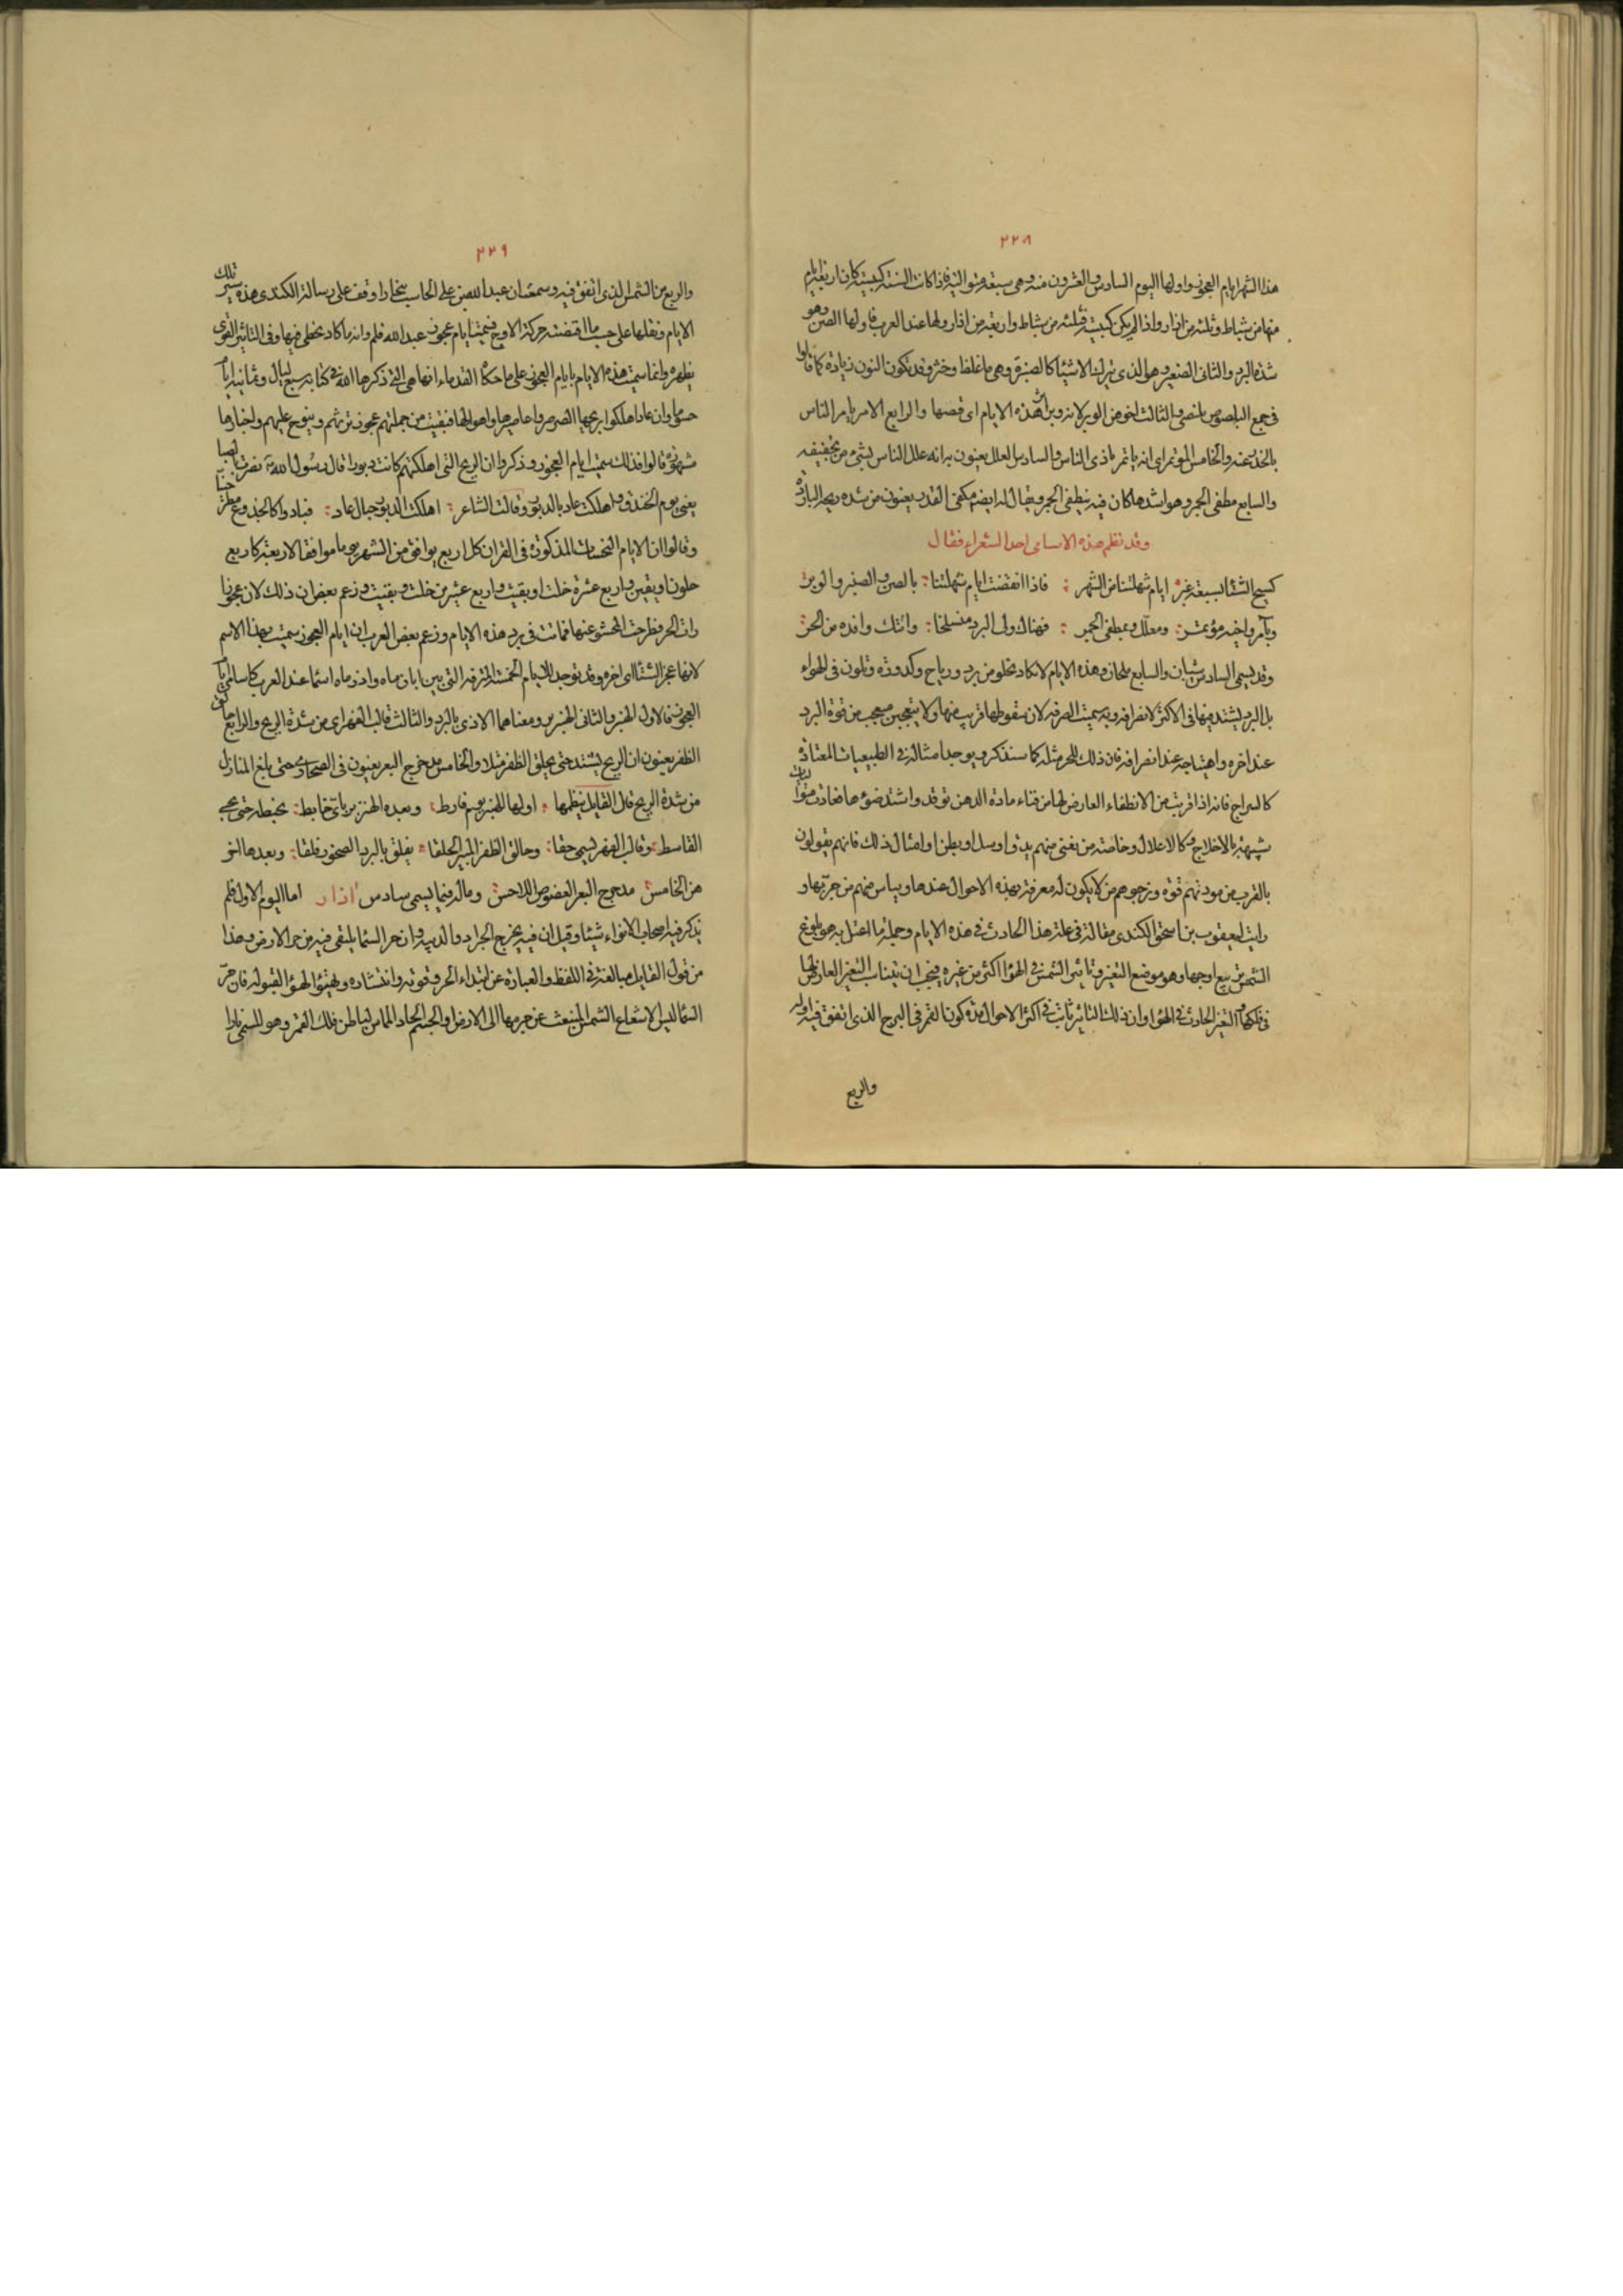 ٢٢٨
هذا الشهر ايام العجوز واولها اليوم السادس والعشرون منه وهى سبعة متوالية فاذا كانت السنة كبيسة كان اربعة ايام
منها من شباط وثلثة من اذار واذا لم يكن كبيسة فثلثة من شباط واربعة من اذار ولها عند العرب فاولها الصن وهو
شدة البرد والثانى الصنبر وهو الذى يترك الاشياء كالصنبرة وهى ما غلظ وخثر وقد تكون النون زيادة كما قالوا
فى جمع البلصوص بلنصى والثالث اخوهن الوبر لانه وبر اثر هذه الايام اى قصها والرابع الامر يامر الناس
بالحذر عنه والخامس المؤتمر اى انه ياتمر باذى الناس والسادس المعلل يعنون به انه علل الناس بشئ من تخفيفه
والسابع مطفى الجمر وهو اشدها كان فيه ينطفى الجمر ويقال له ايضا مكفى القدر يعنون من شدة ريحه الباردة
وقد نظم هذه الاسامى احد الشعراء فقال
كسع الشتا بسبعة غبر ايام شهلتنا من الشهر فاذا انقضت ايام شهلتنا بالصن والصنبر والوبر
وبآمر واخيه مؤتمر ومعلل وبمطفى الجمر فهناك ولى البرد منسلخا واتتك وافدة من الحر
وقد يسمى السادس شيبان والسابع ملحان وهذه الايام لا تكاد تخلو من برد ورياح وكدورة وتلون فى الهواء
بل البرد يشتد فيها فى الاكثر لانصرافه وبه سميت الصرفة لان سقوطها قريب منها ولا يتعجبن متعجب من قوة البرد
عند اخره واهتياجه عند انصرافه فان ذلك للحر مثله كما سنذكر ويوجد امثاله فى الطبيعيات المعتادة
كالسراج فانه اذا قربت من الانطفاء العارض لها من فناء مادة الدهن توقد واشتد ضوءها
شبيهة بالاختلاج وكالاعلال وخاصة من يفنى منهم بدق او سل او بطن او امثال ذلك فانهم يقوون
بالقرب من موتهم قوة ويرجوهم من لا يكون له معرفة بهذه الاحوال عندها وييأس منهم من جربها و
رايت ليعقوب بن اسحق الكندى مقالة فى علة هذا الحادث فى هذه الايام وجملة ما اعتل به هو بلوغ
الشمس تربيع اوجها وهو موضع التغير وتاثير الشمس فى الهواء اكثر من غيره فيجب ان يتناسب التغير العارض لها
فى فلكها والتغير الحادث فى الهواء وان ذلك التاثير ثابت فى اكثر الاحوال مدة كون القمر فى البرج الذى اتفق فيه اوله
والربع
٢٢٩
والربع من الشمس الذى اتفق فيه وسمعت ان عبد الله بن على الحاسب ببخارا وقف على رسالة الكندى هذه تلك
الايام ونقلها على حسب ما اقتضته حركة الاوج فسميت ايام عجوز عبد الله فلم وانه ما كاد يخطى فيها وفى التاثير القوى
يظهره وانما سميت هذه الايام بايام العجوز على ما حكاه القدماء انها هى التى ذكرها الله فى كتابه سبع ليال وثمانية ايام
حسوما وان عادا هلكوا بريحها الصرصر واعاصيرها واهوالها فبقيت من جملتهم عجوز ترثيهم وينوح عليهم واخبارها
مشهورة قالوا فلذلك سميت ايام العجوز وذكروا ان الريح التى اهلكتهم كانت دبورا قال رسول الله نصرت بالصبا
يعنى يوم الخندق واهلكت عاد بالدبور وقالت الشاعر اهلكت الدبور جبال عاد فبادوا كالجذوع
وقالوا ان الايام النحسات المذكورة فى القران كل اربع يوافق من الشهر يوما موافقا لاربعة كاربع
خلون او بقين واربع عشرة خلت او بقيت واربع عشرين خلت وبقيت وزعم بعض ان ذلك لان عجوزا
رات الحر فطرحت المحشو عنها فماتت فى برد هذه الايام وزعم بعض العرب ان ايام العجوز سميت بهذا الاسم
لانها عجز الشتاء اى اخره وقد توجد للايام الخمسة المسترقة التى بين ابان ماه واذر ماه اسماء عند العرب كاسامى ايام
العجوز فالاول الهنبر والثانى الهنزبر ومعناهما الاذى بالبرد والثالث قالب الفهر اى من شدة الريح والرابع حالق
الظفر يعنون ان الريح يشتد حتى يحلق الظفر مثلا والخامس مدحرج البعر يعنون فى الصحارى حتى بلغ المنازل
من شدة الريح قال القايل ينظمها اولها الهنبر يوم فارط وبعده الهنزبر ياتى خابط يخبطه حتى يجى
القاسط وقالب الفهر يسمى حقا وحالق الظفر المبير الحلقا يفلق بالبرد الصخور فلقا وبعدها اخو
هن الخامس مدحرج البعر العضوض اللاحس وماله فيما يسمى سادس اذار اما اليوم الاول فلم
يذكر فيه اصحاب الانواء شيئا وقيل ان فيه يخرج الجراد والدبيب وان حر السماء يلتقى فيه من حر الارض وهذا
من قول القايل مبالغة فى اللفظ والعبارة عن ابتداء الحر وقوته وانتشاره وتهيئو الهواء لقبوله فان حر
السماء ليس الا شعاع الشمس المنبعث عن جرمها الى الارض او الجسم الحار المماس لباطن فلك القمر وهو المسمى نارا